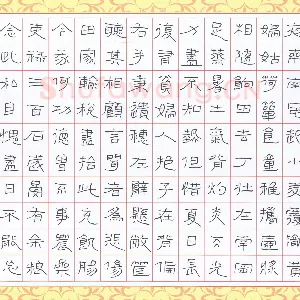 夜來南風起小麥覆隴黃
婦姑荷簞食童稚攜壺漿
相隨餉田去丁壯在南岡
足蒸暑土氣背灼炎天光
力盡不知熱但惜夏日長
復有貧婦人抱子在其旁
右手秉遺穗左臂懸敝筐
聽其相顧言聞者為悲傷
田家輸稅盡拾此充飢腸
今我何功德曾不事農桑
吏祿三百石歲晏有餘糧
念此私自愧盡日不能忘
Shufawang.Cn